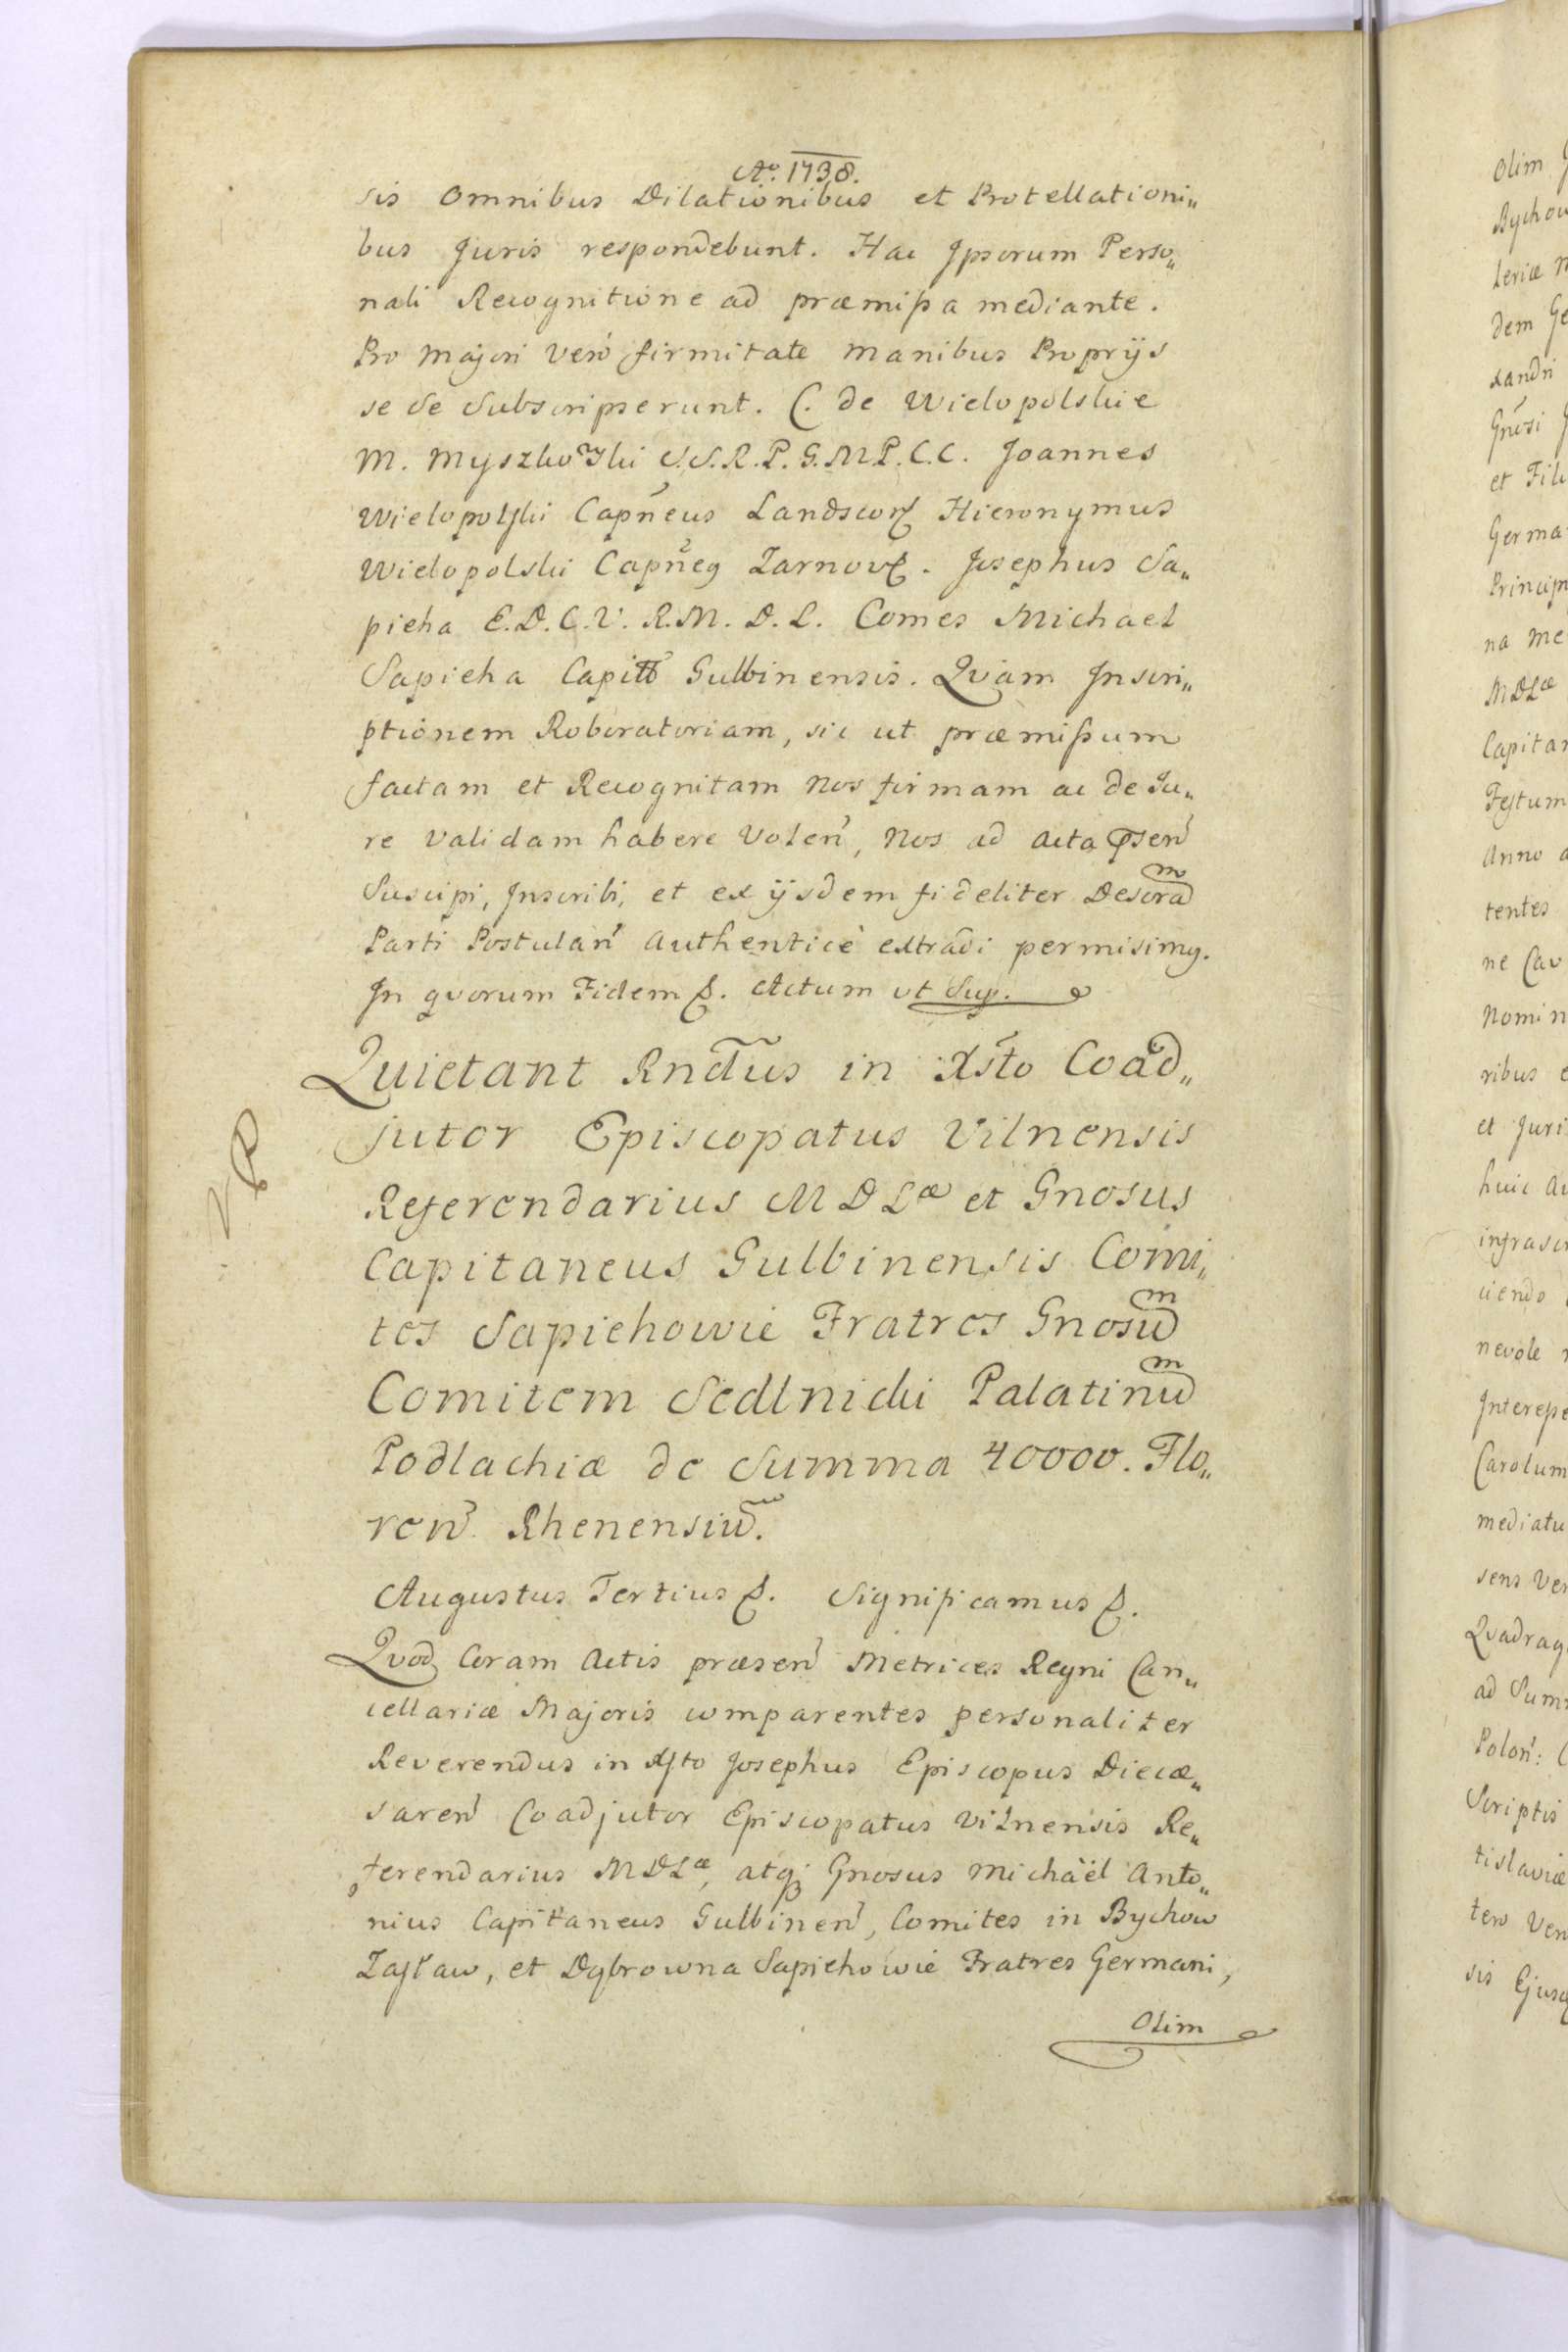 Ao. 1738.
sis omnibus Dilationibus et Protellationi„
bus Juris respondebunt. Hac Jpsorum Perso„
nali Recognitione ad præmißa mediante.
Pro Majori verò firmitate manibus Proprijs
se se subscripserunt. C. de Wielopolskie
M. Myszkowski S.S.R.P.G.M.P.C.C. Joannes
Wielopolski Capñeus Landscor Hieronymus
Wielopolski Capñeg Zarnov. Josephus Sa„
pieha E.D.C.V.R.M.D.L. Comes Michael
Sapieha Capitt Gulbinensis. Qvam Jnscri„
ptionem Roboratoriam, sic ut præmißum
factam et Recognitam nos firmam ac de Ju„
re validam habere Volen̄, Nos ad acta p̄sen̄
Suscipi, Jnscribi, et ex ijsdem fideliter Descram̄
Parti Postulan̄ Authenticè extradi permisimg.
Jn qvorum Fidem &. Actum ut Sup.
Quietant Rndus in Xsto Coad„
jutor Episcopatus Vilnensis
Referendarius MDLæ et Gnosus
Capitaneus Gulbinensis Comi„
tes Sapiehowie Fratres Gnosum̄
Comitem Sedlnicki Palatinum̄
Podlachiæ de Summa 40000. Flo„
ren̄ Rhenensiū.
Augustus Tertius &. Significamus &.
Qvod Coram Actis præsen̄ Metrices Regni Can„
cellariæ Majoris comparentes personaliter
Reverendus in Xsto Josephus Episcopus Diecæ„
saren̄ Coadjutor Episcopatus Vilnensis Re„
ferendarius MDLæ, atq; Gnosus Michaël Anto„
nius Capitaneus Gulbinen̄, Comites in Bychow
Zasław, et Dąbrowna Sapiehowie Fratres Germani,
Olim
Olim
Bychow
leriæ
dem
xandri
Gnosi
et
Germa
Princip
na
MDLæ
Capitan
Festum
Anno
tentes
ne
Nomin
ribus
et Juri
huic
infrascr
ciendo
nevole
Jnterepe
Carolum
mediatu
sens
Qvadrag
ad Sum
Polon̄:
Scriptis
tislaviæ
tero
sis